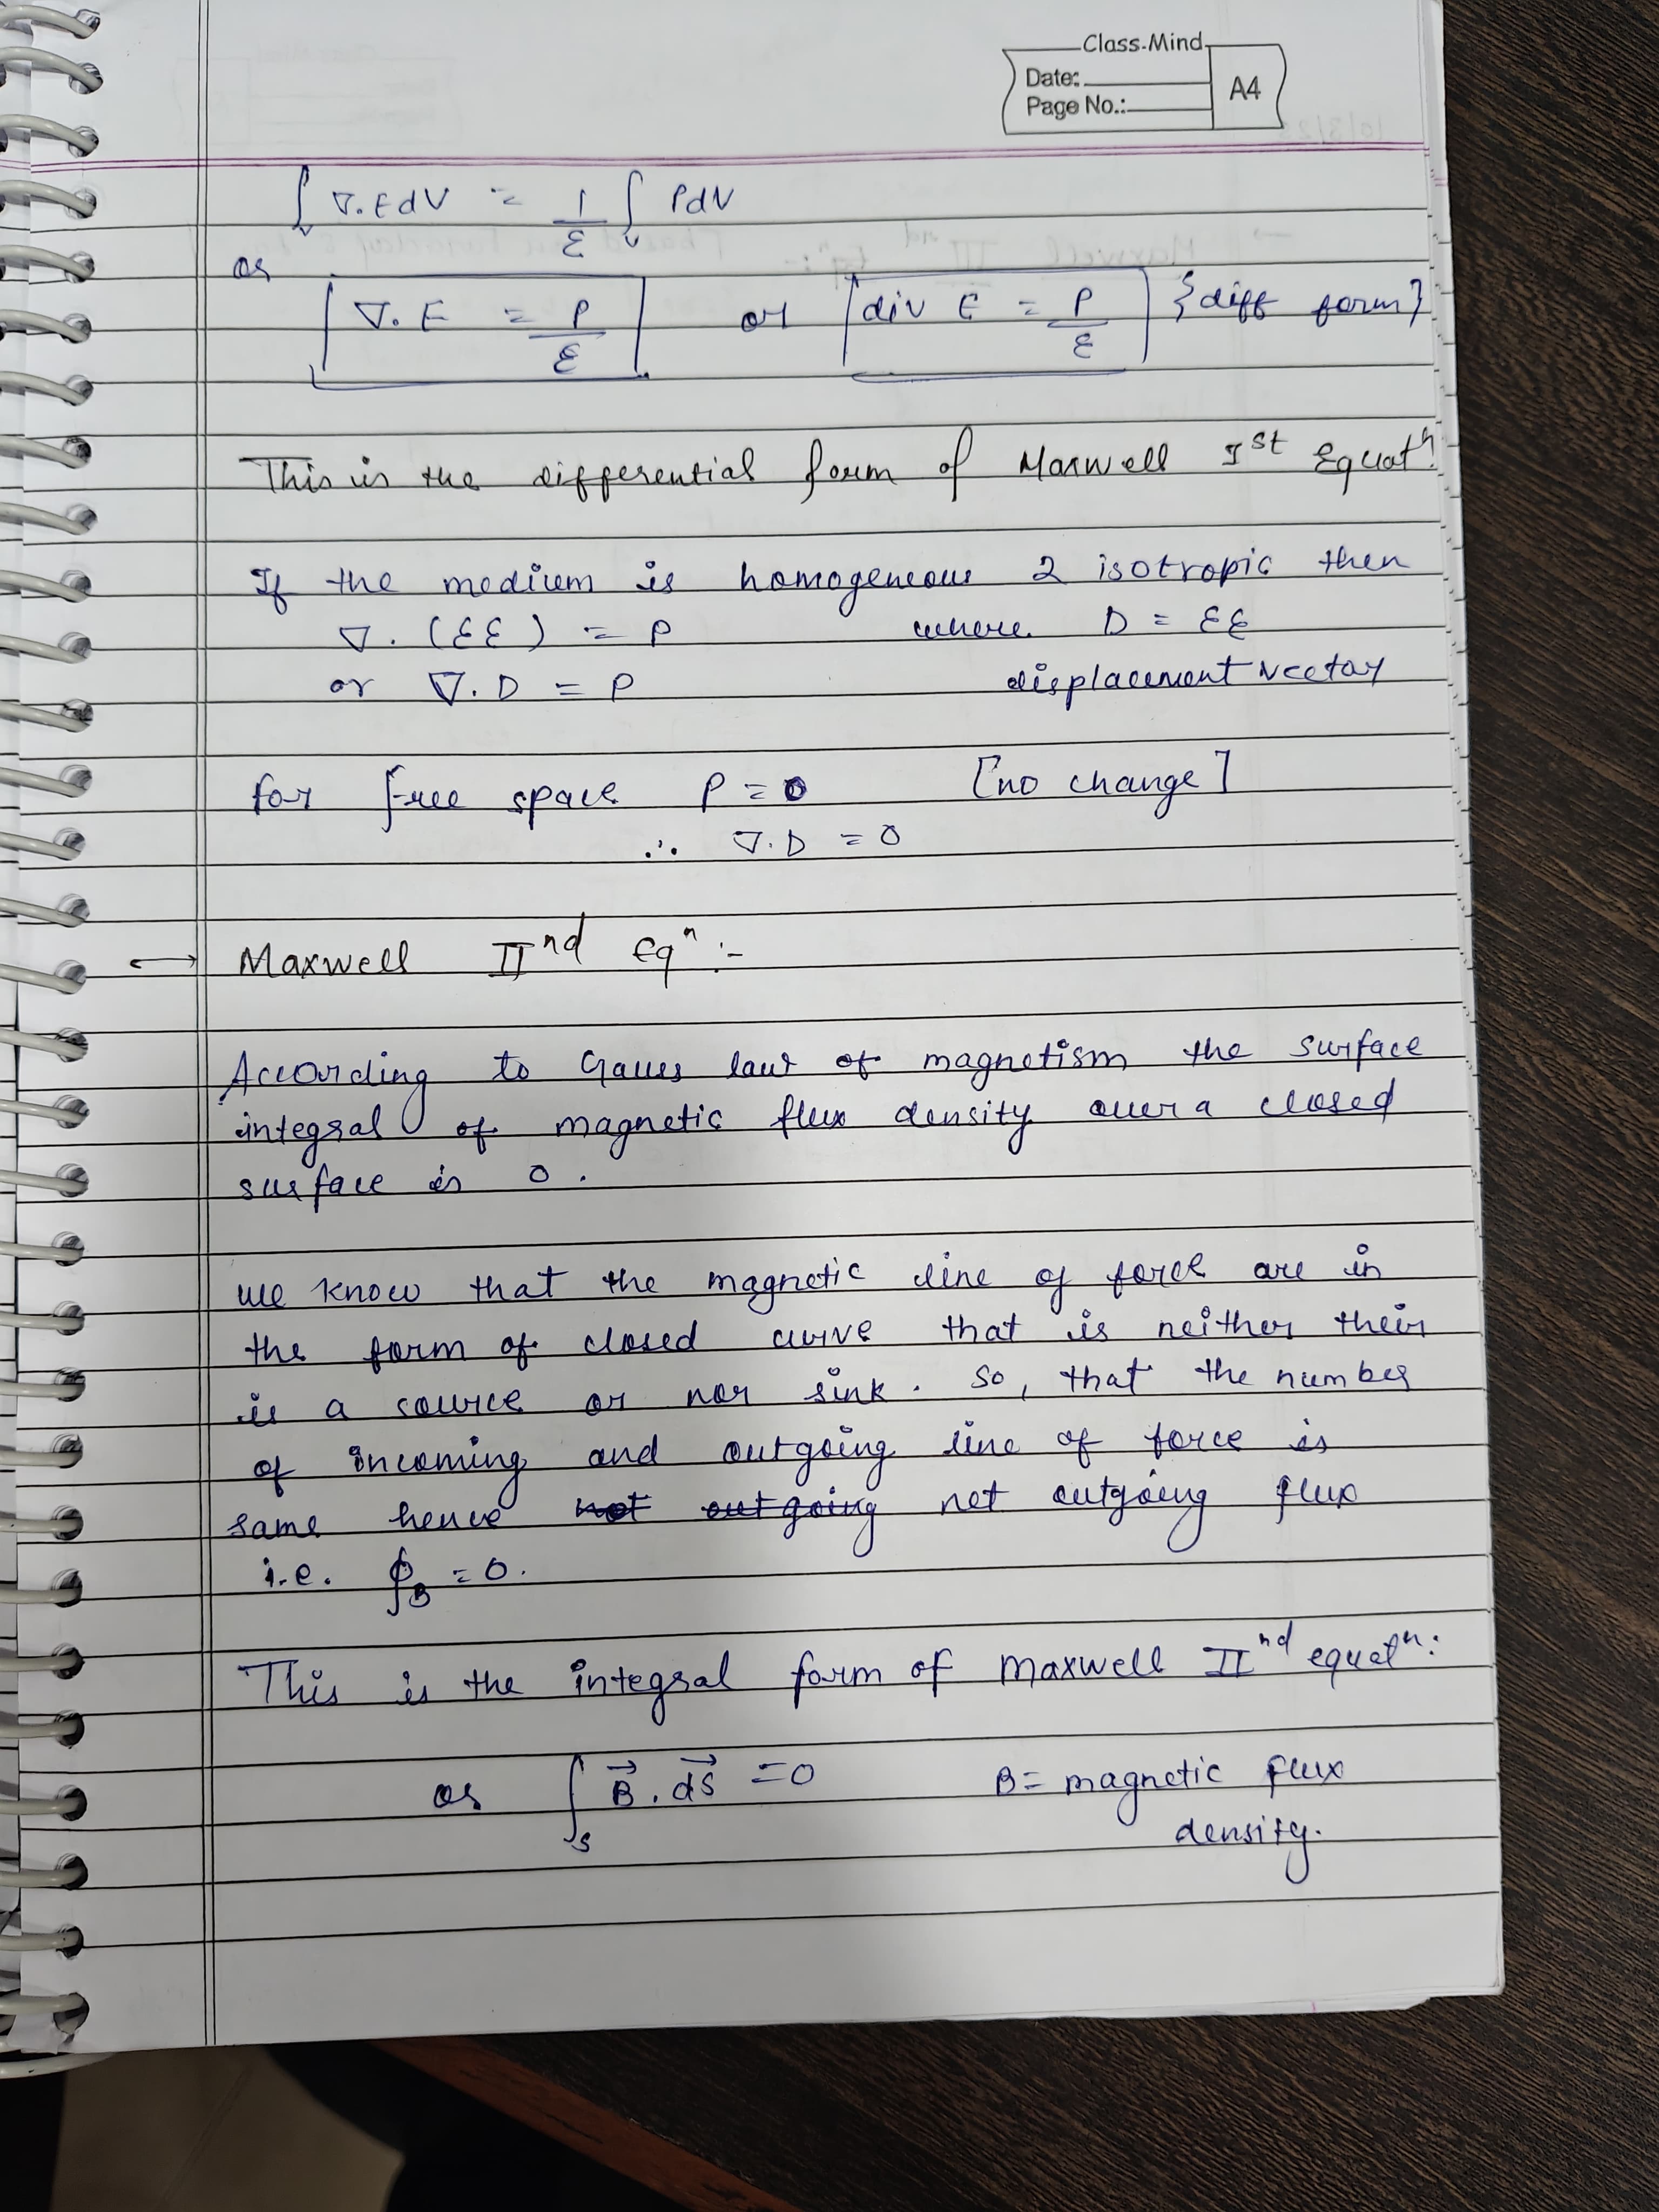 Class-Mind
Date:
Page No.:
A4
∫v ∇.E dV = 1/ε ∫v ρdV
or
∇.E = ρ/ε or div E = ρ/ε {diff form}
This is the differential form of Maxwell Ist Equatn.
If the medium is homogeneous & isotropic then
∇.(εE) = ρ where D = εE
or ∇.D = ρ displacement vector
for free space ρ = 0 [no change]
∴ ∇.D = 0
→ Maxwell IInd Eqn :-
According to Gauss law of magnetism the surface
integral of magnetic flux density over a closed
surface is 0.
we know that the magnetic line of force are in
the form of closed curve that is neither their
is a source or nor sink. So, that the number
of incoming and outgoing line of force is
same hence not outgoing net outgoing flux
i.e. ϕB = 0.
This is the integral form of maxwell IInd equatn:
or ∫s B⃗.dS⃗ = 0 B = magnetic flux
density.